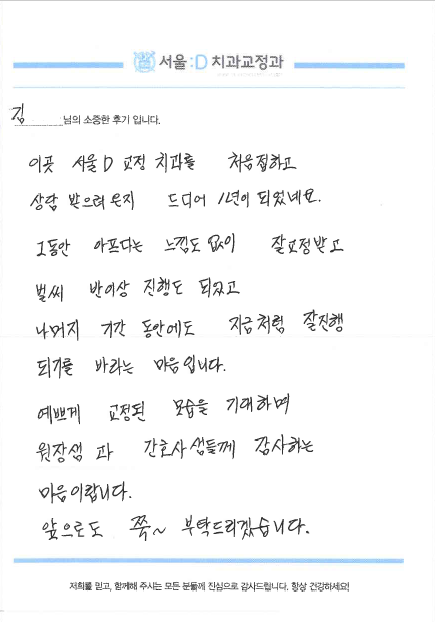 서울:D 치과교정과
김 님의 소중한 후기 입니다.
이곳 서울D 교정 치과를 처음접하고
상담 받으러 온지 드디어 1년이 되었네요.
그동안 아프다는 느낌도 없이 잘교정받고
벌써 반이상 진행도 되었고
나머지 기간 동안에도 지금처럼 잘진행
되기를 바라는 마음입니다.
예쁘게 교정된 모습을 기대하며
원장샘 과 간호사샘들께 감사하는
마음이랍니다.
앞으로도 쭉~ 부탁드리겠습니다.
저희를 믿고, 함께해 주시는 모든 분들께 진심으로 감사드립니다. 항상 건강하세요!